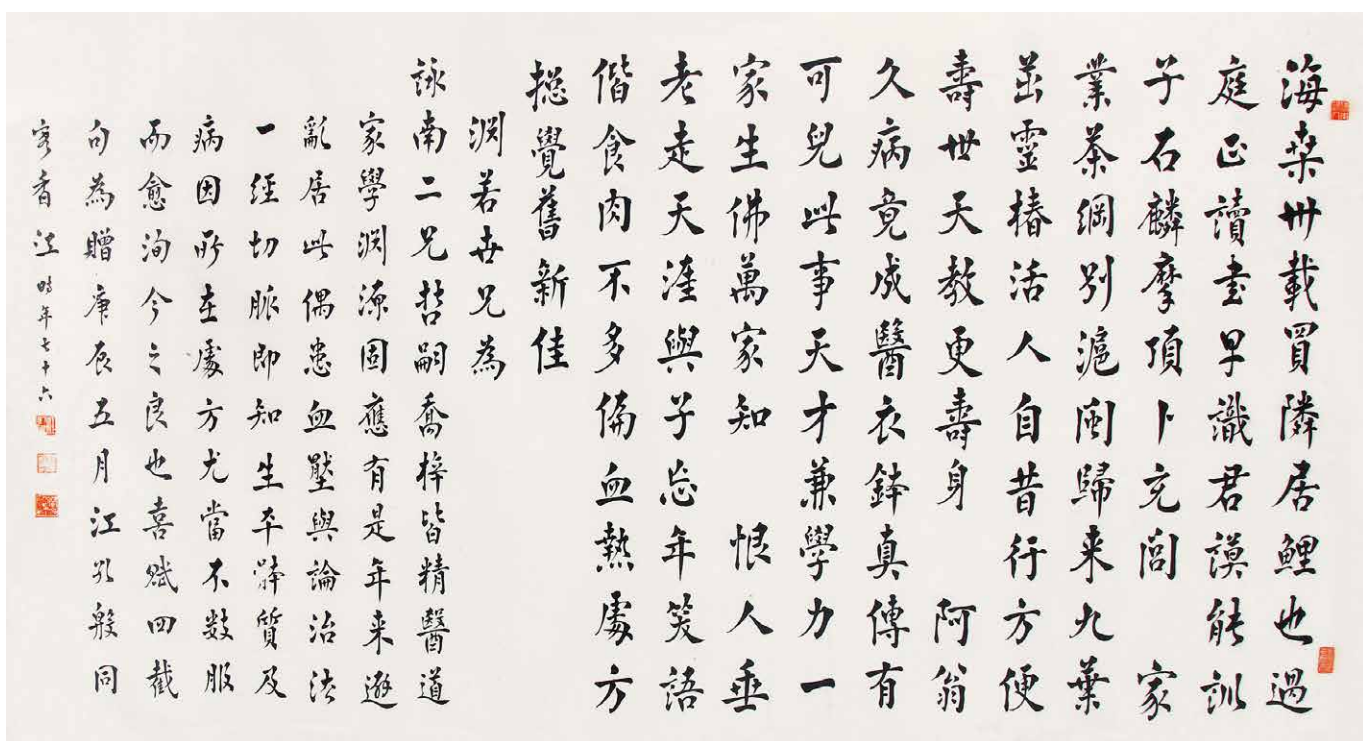 海桑卅載買隣居鯉也過
庭正讀書早識君謨能訓
子石麟摩頂卜充閭 家
業茶綱別滬閩歸来九葉
茁靈椿活人自昔行方便
壽世天教更壽身 阿翁
久病竟成醫衣鉢真傳有
可兒此事天才兼學力一
家生佛萬家知 恨人垂
老走天涯與子忘年笑語
偕食肉不多偏血熱處方
摠覺舊新佳
渕若世兄為
詠南二兄哲嗣喬梓皆精醫道
家學渕源固應有是年来避
亂居此偶患血壓與論治法
一經切脈即知生平體質及
病因所在處方尤當不數服
而愈洵今之良也喜賦四截
句為贈庚辰五月江孔殷同
客香江時年七十六